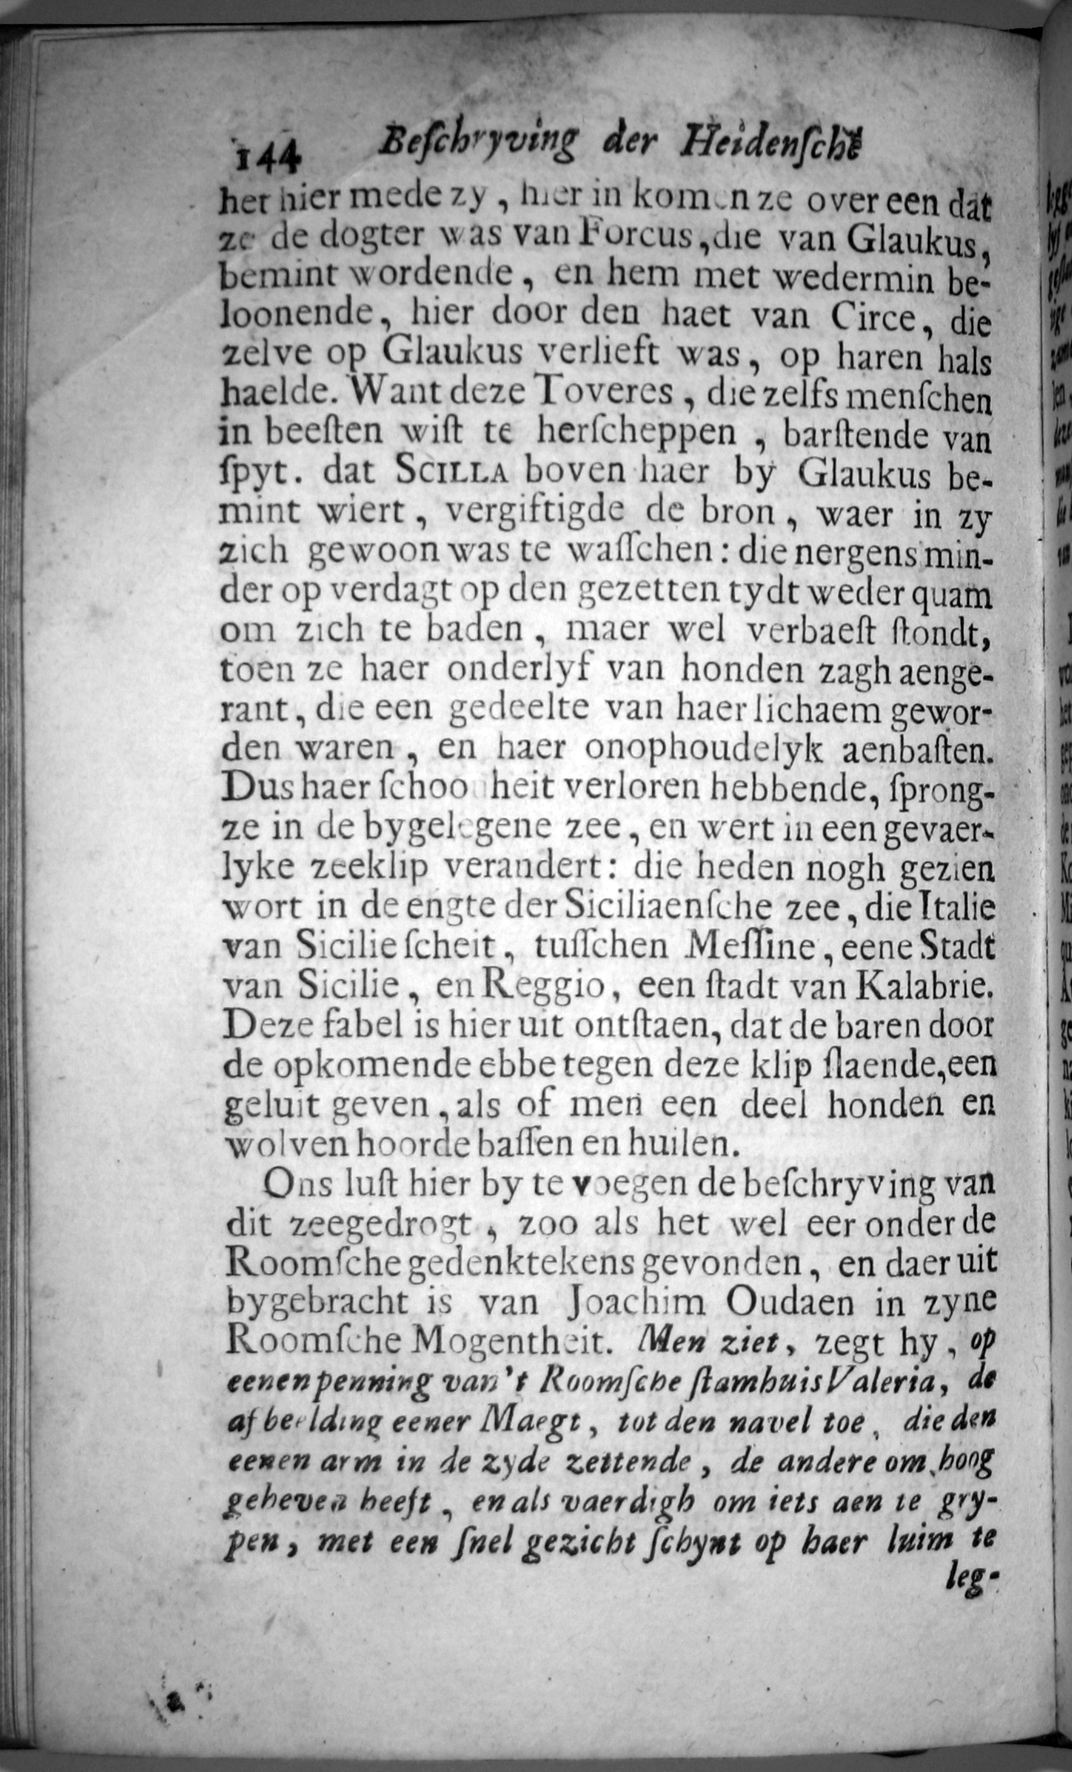 144 Beſchryving der Heidenſche
het hier mede zy, hier in komen ze over een dat
ze de dogter was van Forcus, die van Glaukus,
bemint wordende, en hem met wedermin be-
loonende, hier door den haet van Circe, die
zelve op Glaukus verlieft was, op haren hals
haelde. Want deze Toveres, die zelfs menſchen
in beeſten wiſt te herſcheppen, barſtende van
ſpyt. dat SCILLA boven haer by Glaukus be-
mint wiert, vergiftigde de bron, waer in zy
zich gewoon was te waſſchen: die nergens min-
der op verdagt op den gezetten tydt weder quam
om zich te baden, maer wel verbaeſt ſtondt,
toen ze haer onderlyf van honden zagh aenge-
rant, die een gedeelte van haer lichaem gewor-
den waren, en haer onophoudelyk aenbaſten.
Dus haer ſchoonheit verloren hebbende, ſprong-
ze in de bygelegene zee, en wert in een gevaer-
lyke zeeklip verandert: die heden nogh gezien
wort in de engte der Siciliaenſche zee, die Italie
van Sicilie ſcheit, tuſſchen Meſſine, eene Stadt
van Sicilie, en Reggio, een ſtadt van Kalabrie.
Deze fabel is hier uit ontſtaen, dat de baren door
de opkomende ebbe tegen deze klip ſlaende, een
geluit geven, als of men een deel honden en
wolven hoorde baſſen en huilen.
Ons luſt hier by te voegen de beſchryving van
dit zeegedrogt, zoo als het wel eer onder de
Roomſche gedenktekens gevonden, en daer uit
bygebracht is van Joachim Oudaen in zyne
Roomſche Mogentheit. Men ziet, zegt hy, op
eenen penning van 't Roomſche ſtamhuis Valeria, de
afbeelding eener Maegt, tot den navel toe, die den
eenen arm in de zyde zettende, de andere om hoog
geheven heeft, en als vaerdigh om iets aen te gry-
pen, met een ſnel gezicht ſchynt op haer luim te
leg-